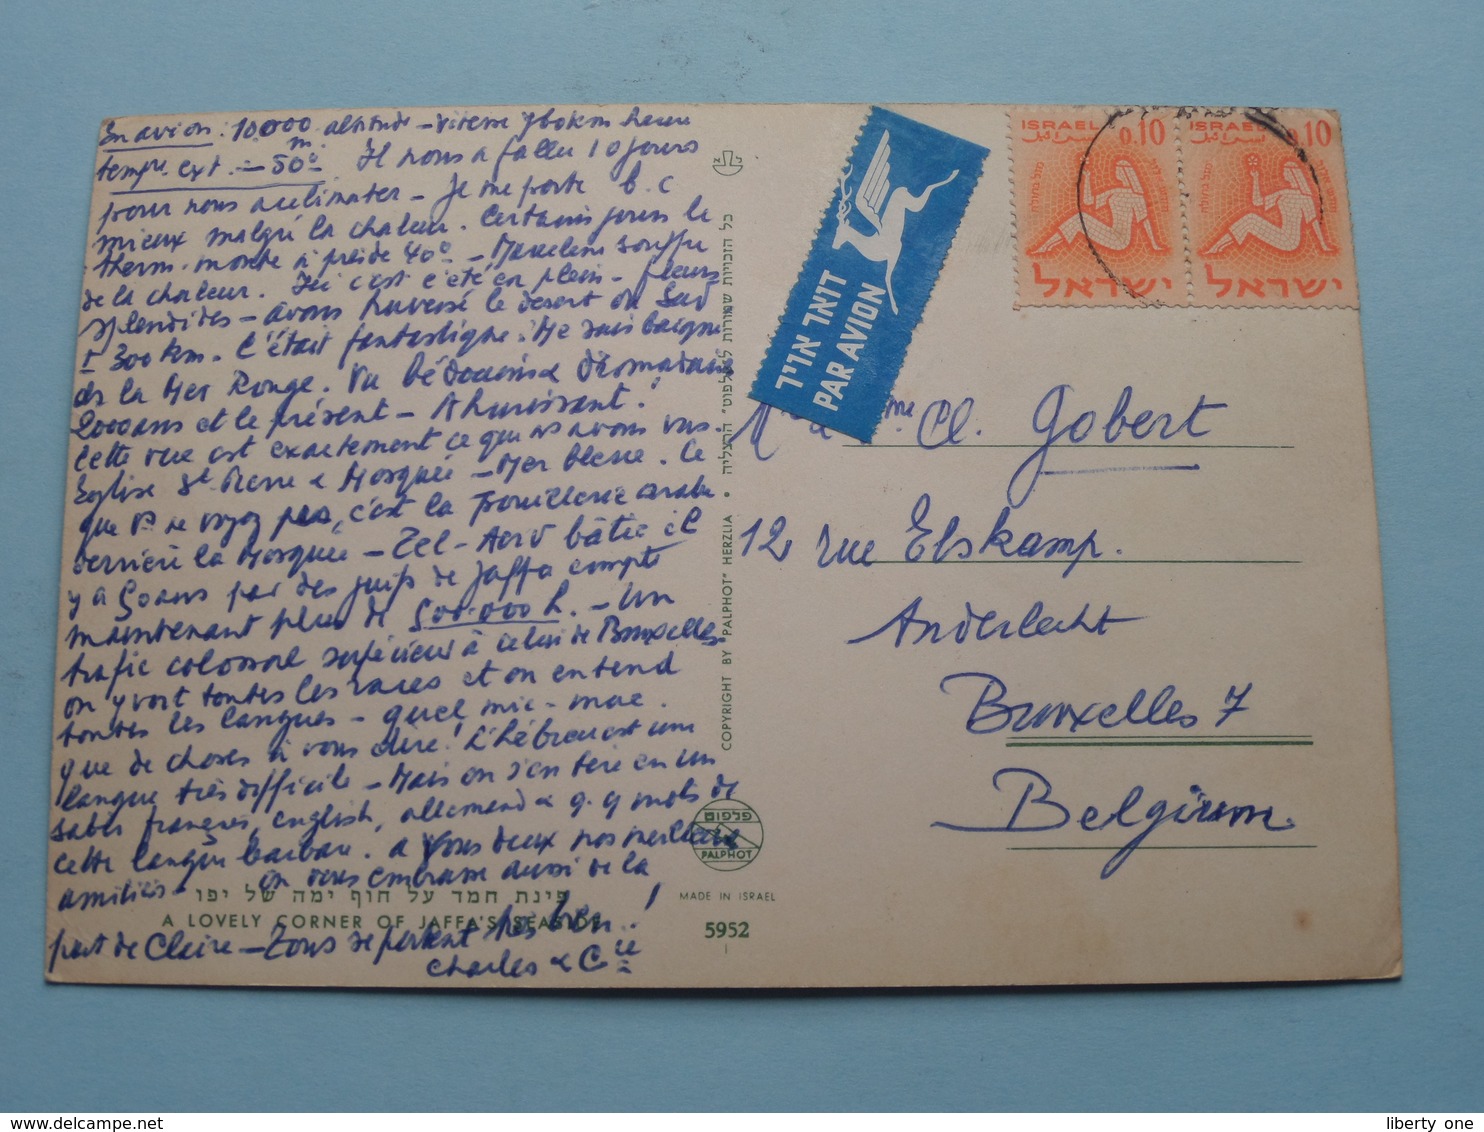 En avion : 10.000 m. altitude – vitesse 960 km heure
temp. ext. – 50° Il nous a fallu 10 jours
pour nous acclimater – Je me porte b. c
mieux malgré la chaleur. Certains jours le
therm. monte à près de 40° – souffre
de la chaleur. Ici c'est l'été en plein – fleurs
splendides – avons traversé le désert du Sud
± 300 km. C'était fantastique. Me suis baigné
ds la Mer Rouge. Vu bédouins & dromadaires
2000 ans et le présent – Ahurissant!
Cette vue est exactement ce que ns avons vus.
Eglise St Pierre & Mosquée – Mer bleue. Ce
que vs ne voyez pas, c'est la arabe
derrière la Mosquée – Tel-Aviv bâtie il
y a 50 ans par des juifs de Jaffa compte
maintenant plus de 500.000 h. – Un
trafic colossal supérieur à celui de Bruxelles
on y voit toutes les races et on entend
toutes les langues – quel mic-mac.
que de choses à vous dire! L'hébreu est une
langue très difficile – Mais on s'en tire en un
sabir français, english, allemand & q. q mots de
cette langue barbare. A vous deux nos meilleures
amitiés – on vous embrasse aussi de la
part de Claire – Tous se portent très bien!
Charles & Cie
פינת חמד על חוף ימה של יפו
A LOVELY CORNER OF JAFFA'S SEASIDE
כל הזכויות שמורות ל"פלפוט" הרצליה
COPYRIGHT BY "PALPHOT" HERZLIA
פלפוט
PALPHOT
MADE IN ISRAEL
5952
דואר אויר
PAR AVION
ISRAEL 0.10
ישראל
ISRAEL 0.10
ישראל
Mr & Mme Cl. Gobert
12 rue Elskamp.
Anderlecht
Bruxelles 7
Belgium.
liberty one